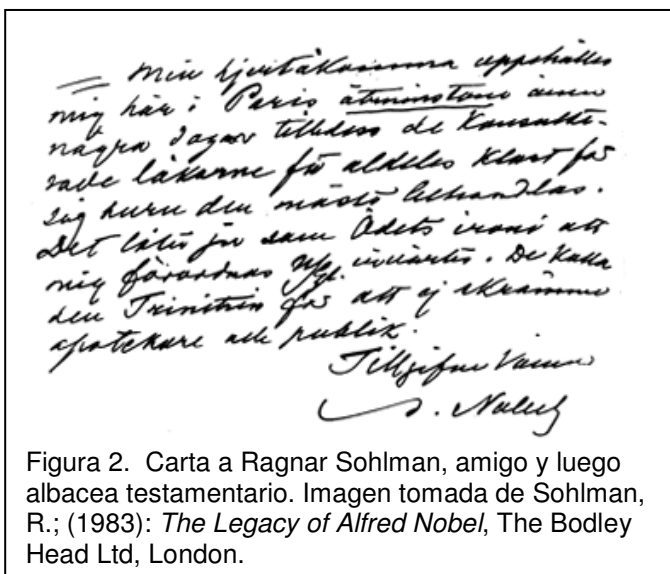 — Min hjertåkomma uppehålles
mig här i Paris åtminstone ännu
några dagar tilldess de Konsulte-
rade läkarne få aldeles klart för
sig huru den måste behandlas.
Det låter ju som Ödets ironi att
mig förordnas Ngl. invärtes. De kalla
den Trinitrin för att ej skrämma
apotekare och publik.
Tillgifne Vännen
A. Nobel
Figura 2. Carta a Ragnar Sohlman, amigo y luego
albacea testamentario. Imagen tomada de Sohlman,
R.; (1983): The Legacy of Alfred Nobel, The Bodley
Head Ltd, London.